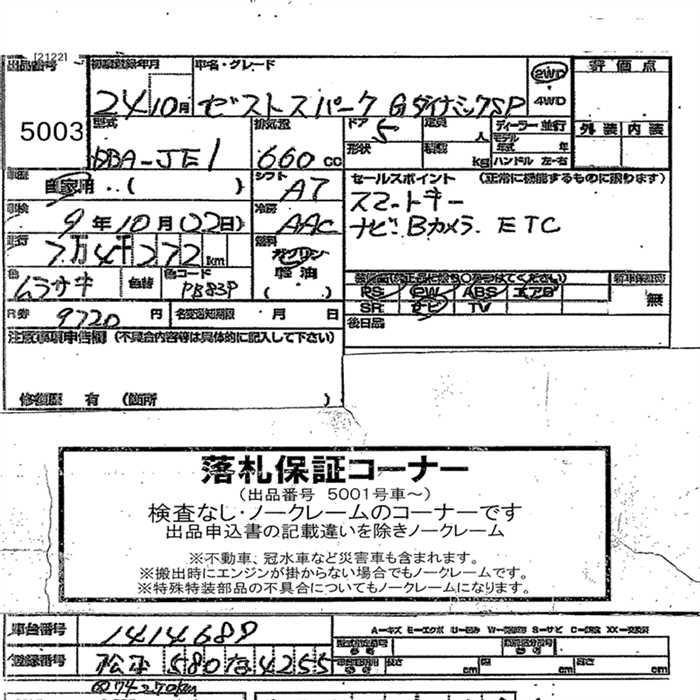 [2122]
出品番号 初度登録年月 車名・グレード 評価点
5003
24 10月 ゼストスパーク GダイナミックSP 2WD
4WD
型式 排気量 ドア 定員 人 ディーラー 並行 外装 内装
DBA-JE1 660cc 5 形状 積載 kg モデル年式 年
ハンドル 左・右
車歴 自家用・( ) シフト AT セールスポイント (正常に機能するものに限ります)
車検 9年10月(22日) 冷房 AAC スマートキー
ナビ・Bカメラ ETC
走行 7万4千272km 燃料 ガソリン
軽油
( )
色 ムラサキ 色替 色コード PB83P
PS PW ABS エアB 無
SR ナビ TV
R券 9720円 名変通知期限 月 日 後日品
注意事項申告欄 (不具合内容等は具体的に記入して下さい)
修復歴 有 (箇所 )
落札保証コーナー
(出品番号 5001号車~)
検査なし・ノークレームのコーナーです
出品申込書の記載違いを除きノークレーム
※不動車、冠水車など災害車も含まれます。
※搬出時にエンジンが掛からない場合でもノークレームです。
※特殊特装部品の不具合についてもノークレームになります。
車台番号 1414689
登録番号 松本 580 な 4255 長さ cm 幅 cm 高さ cm
74270km